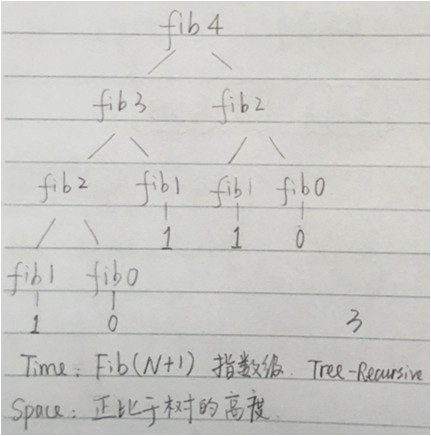 fib4
fib3 fib2
fib2 fib1 fib1 fib0
1 1 0
fib1 fib0
1 0 3
Time: Fib(N+1) 指数级. Tree-Recursive
Space: 正比于树的高度.